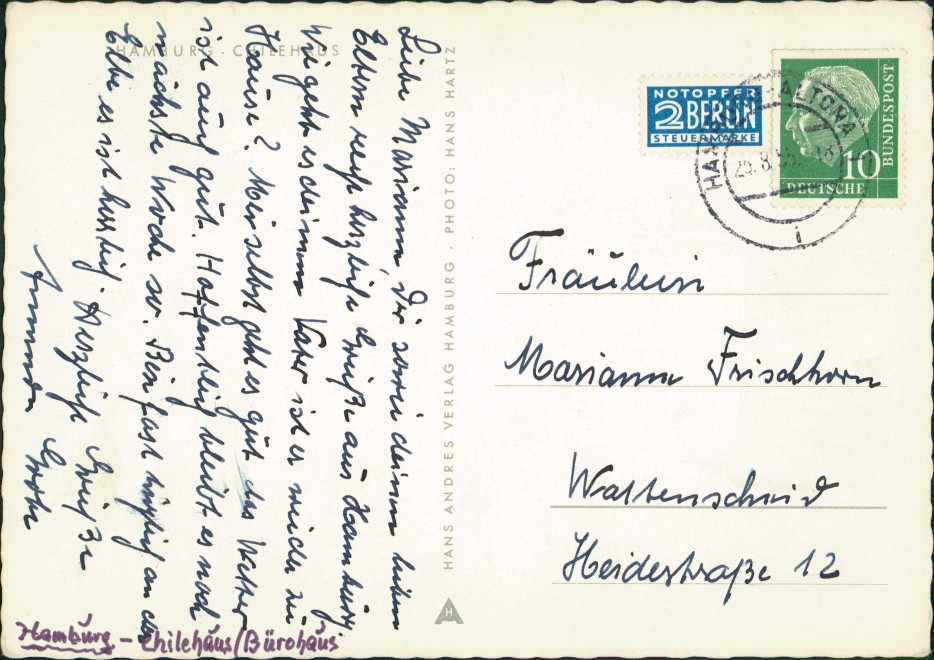 HAMBURG · CHILEHAUS
Liebe Mariann! Dir sowie deinen lieben
Eltern recht herzliche Grüße aus Hamburg
Wie geht es deinem Vater ist er wieder zu
Hause? Mir selbst geht es gut das Wetter
ist auch gut. Hoffentlich bleibt es noch
nächste Woche so. Bin fast täglich an der
Elbe es ist herrlich. Herzliche Grüße
HANS ANDRES VERLAG HAMBURG · PHOTO: HANS HARTZ
H
NOTOPFER
2 BERLIN
STEUERMARKE
HAMBURG-ALTONA
25.8.55
i
10
DEUTSCHE
BUNDESPOST
Fräulein
Mariann Frischhorn
Wattenscheid
Heidestraße 12
Hamburg - Chilehaus/Bürohaus